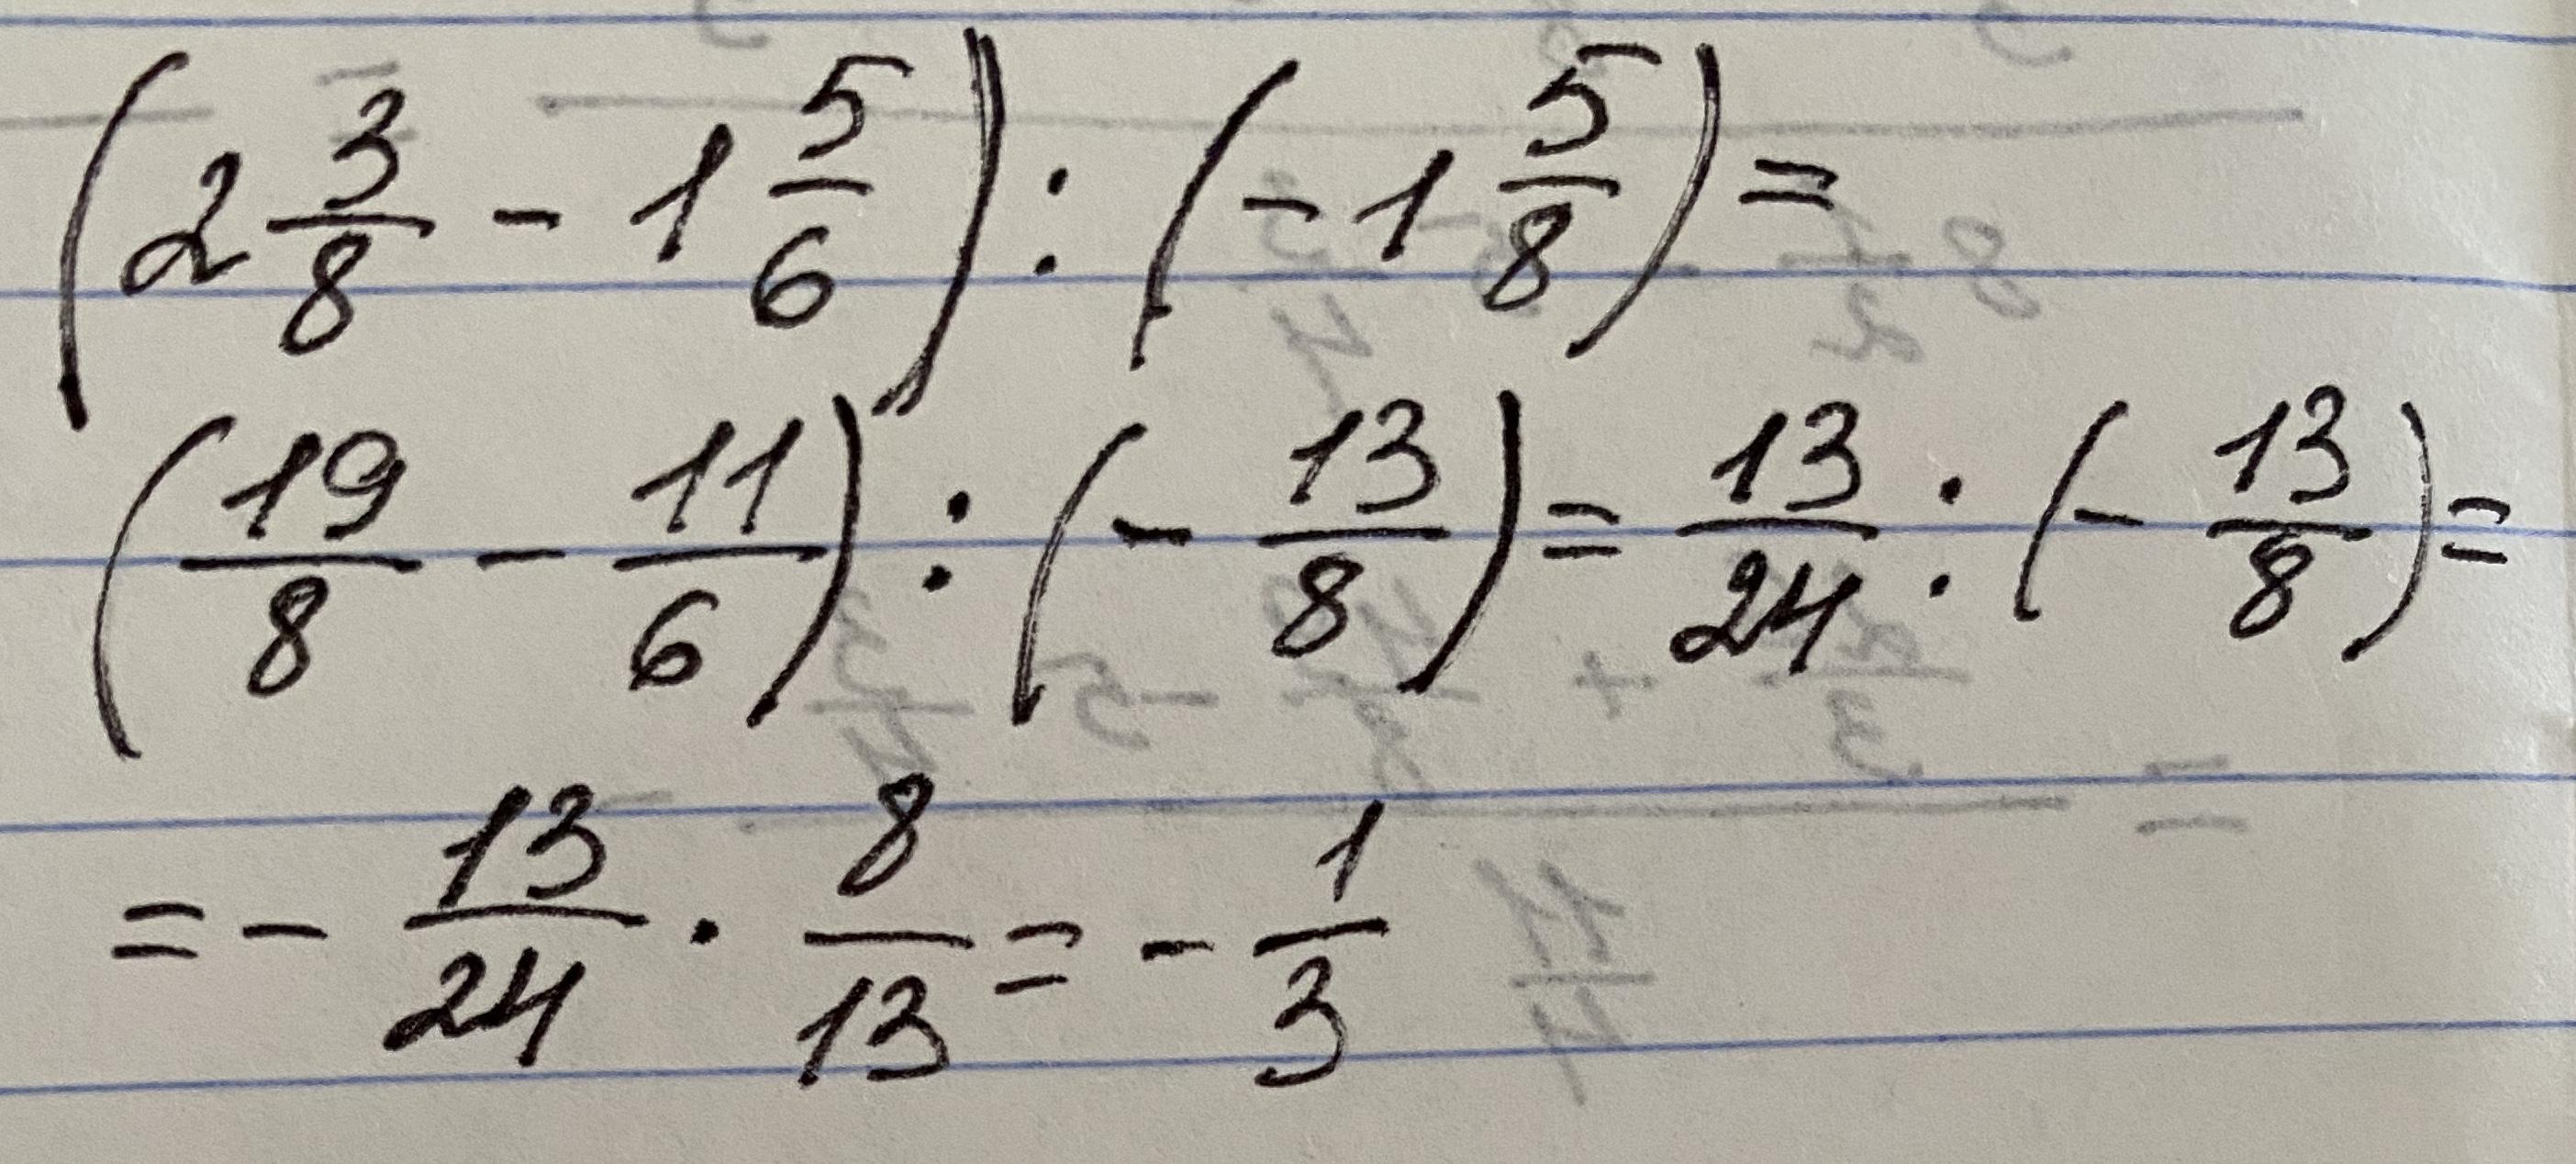 (2 3/8 - 1 5/6) : (-1 5/8) =
(19/8 - 11/6) : (- 13/8) = 13/24 : (- 13/8) =
= - 13/24 · 8/13 = - 1/3